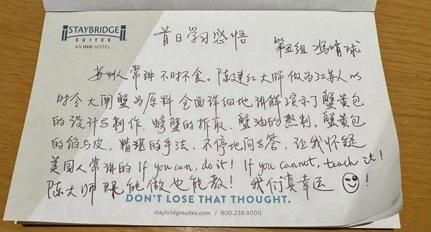 STAYBRIDGE
SUITES
AN IHG HOTEL
昔日学习感悟
第五组 冯晴球
苏州人常讲不时不食。陈建红大师做为江苏人以
时令大闸蟹为原料全面详细地讲解演示了蟹黄包
的设计与制作，螃蟹的拆取，蟹油的熬制，蟹黄包
的馅与皮，精湛的手法，不停地问与答，让我怀疑
美国人常讲的 If you can, do it! If you cannot, teach it!
陈大师既能做也能教！我们真幸运！
DON'T LOSE THAT THOUGHT.
staybridgesuites.com / 800.238.8000